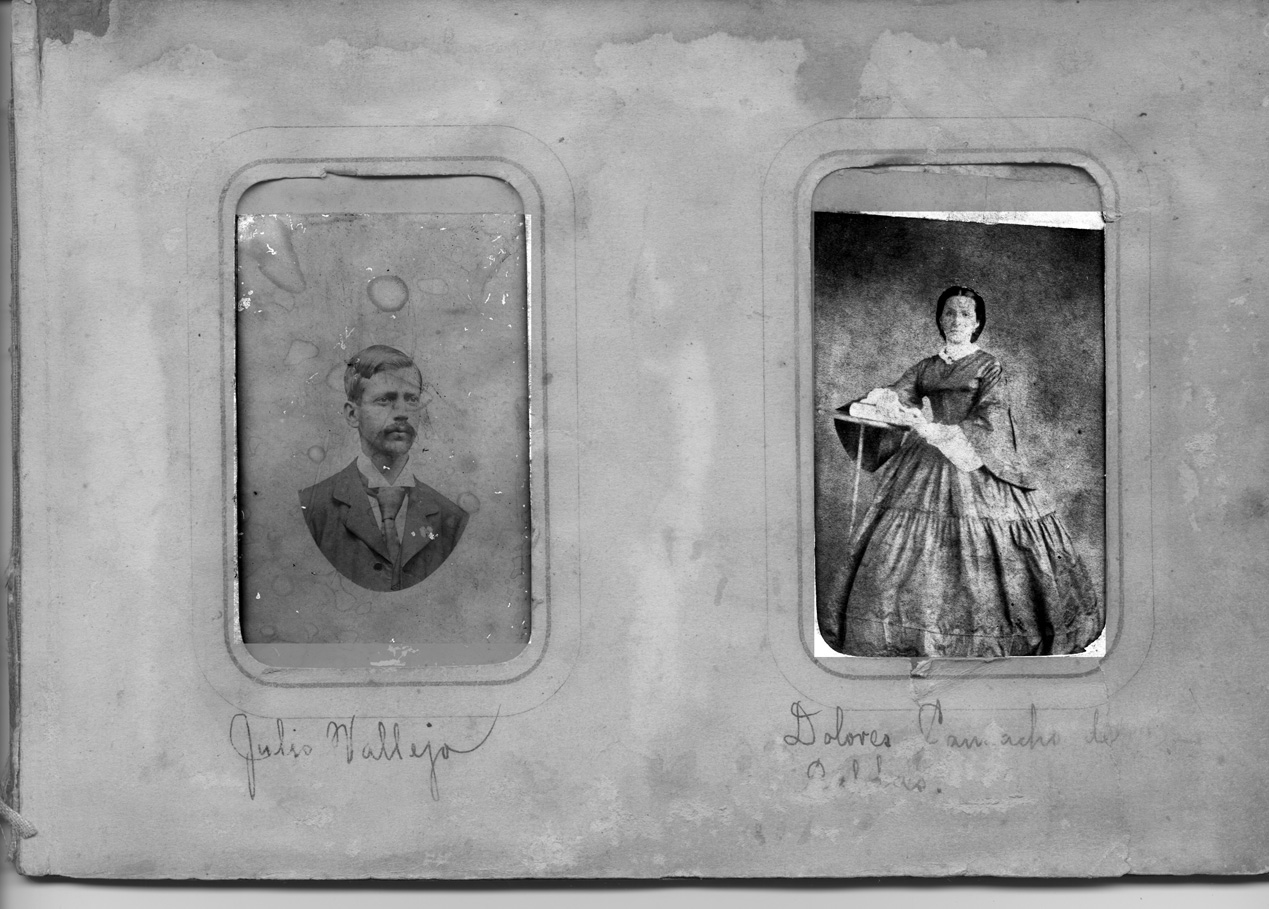 Julio Vallejo
Dolores Camacho de